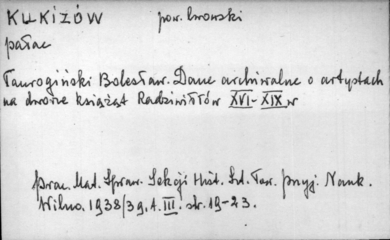 KUKIZÓW pow. lwowski
pałac
Taurogiński Bolesław. Dane archiwalne o artystach
na dworze książąt Radziwiłłów XVI-XIX w
Prac. Mat. Spraw. Sekcji Hist. Szt. Tow. przyj. Nauk.
Wilno. 1938/39. t. III. str. 19-23.